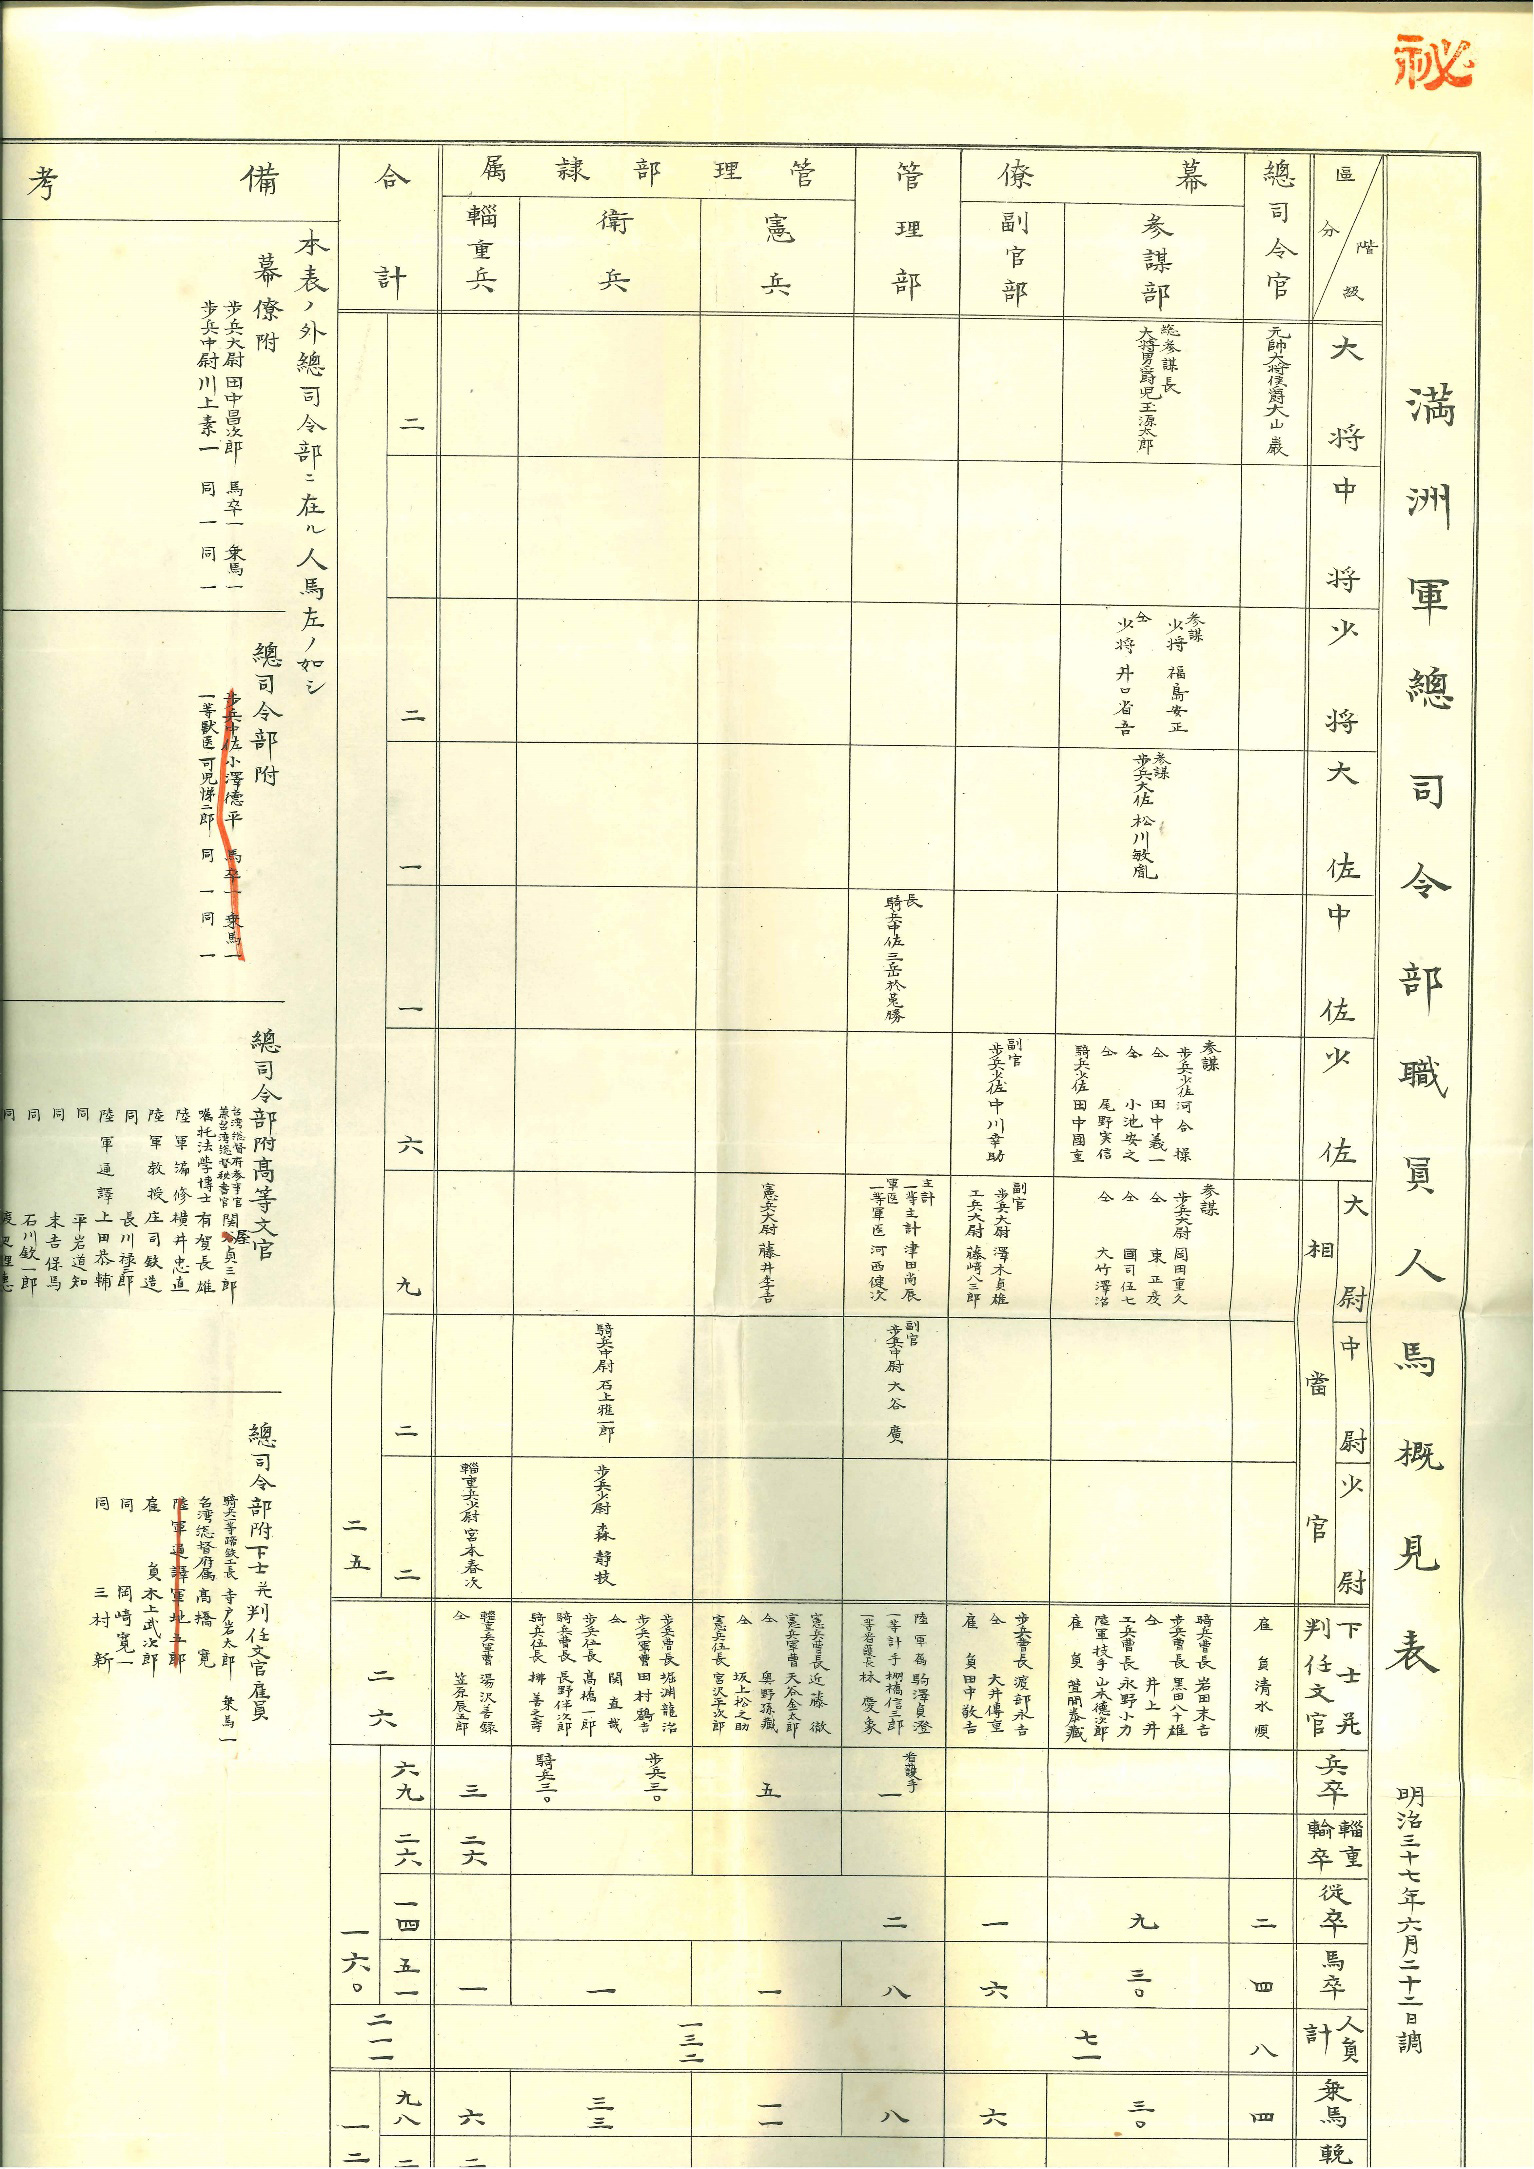 秘
満洲軍總司令部職員人馬概見表 明治三十七年六月二十二日調
區分 階級
大将
中将
少将
大佐
中佐
少佐
相當官
大尉
中尉
少尉
下士並判任文官
兵卒
輜重輸卒
従卒
馬卒
人員計
乗馬
總司令官
元帥大将侯爵大山巌
雇員 清水順
二
四
八
四
幕僚
参謀部
總参謀長
大将男爵児玉源太郎
参謀
少将 福島安正
仝
少将 井口省吾
参謀
歩兵大佐 松川敏胤
参謀
歩兵少佐 河合操
仝 田中義一
仝 小池安之
仝 尾野実信
騎兵少佐 田中國重
参謀
歩兵大尉 岡田重久
仝 東正彦
仝 國司伍七
仝 大竹澤治
騎兵曹長 岩田末吉
歩兵曹長 黒田八十雄
仝 井上井
工兵曹長 永野小力
陸軍技手 山本徳次郎
九
三〇
七一
三〇
副官部
副官
歩兵少佐 中川幸助
副官
歩兵大尉 澤木貞雄
工兵大尉 藤崎八三郎
歩兵曹長 渡部永吉
仝 大井傳重
雇員 田中敬吉
一
六
六
管理部
長
騎兵中佐 三岳於菟勝
主計
一等主計 津田尚辰
軍医
一等軍医 河西健次
副官
歩兵中尉 大谷廣
陸軍属 駒澤貞澄
一等計手 棚橋信三郎
一等看護長 林慶象
看護手
一
二
八
八
管理部隷属
憲兵
憲兵大尉 藤井李吉
憲兵曹長 近藤徹
憲兵軍曹 天谷金太郎
仝 奥野孫蔵
仝 坂上松之助
憲兵伍長 宮沢平次郎
五
一
一一
衛兵
騎兵中尉 石上雅一郎
歩兵少尉 森静技
歩兵曹長 堀渕龍治
歩兵軍曹 田村鶴吉
仝 関直哉
歩兵伍長 高橋一郎
騎兵曹長 長野伴次郎
騎兵伍長 柳善之壽
歩兵三〇
騎兵三〇
一
一三二
三三
輜重兵
輜重兵少尉 宮本春次
輜重兵軍曹 湯沢善録
仝 笠原辰五郎
三
二六
一
六
合計
二
二
一
一
六
九
二
二
二五
二六
六九
二六
一四
五一
一六〇
二一一
九八
備考
本表ノ外總司令部ニ在ル人馬左ノ如シ
幕僚附
歩兵大尉 田中昌次郎 馬卒一 乗馬一
歩兵中尉 川上素一 同一 同一
總司令部附
歩兵中佐 小澤徳平 馬卒一 乗馬一
一等獣医 可児悌二郎 同一 同一
總司令部附高等文官
台湾総督府参事官
兼台湾総督秘書官 関屋貞三郎
嘱托法学博士 有賀長雄
陸軍編修 横井忠直
陸軍教授 庄司鉄造
同 長川禄三郎
陸軍通譯 上田恭輔
同 平岩道知
同 末吉保馬
同 石川欽一郎
同
總司令部附下士並判任文官雇員
騎兵一等蹄鉄工長 寺戸岩太郎 乗馬一
台湾総督府属 高橋寛
陸軍通譯 軍地五郎
雇員 木上武次郎
同 岡崎寛一
同 三村新